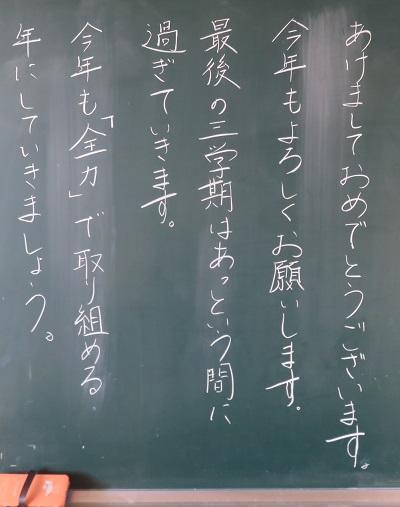 あけましておめでとうございます。
今年もよろしくお願いします。
最後の三学期はあっという間に
過ぎていきます。
今年も「全力」で取り組める
年にしていきましょう。